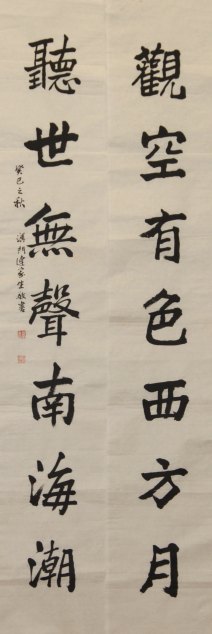 觀空有色西方月
聽世無聲南海潮
癸巳之秋